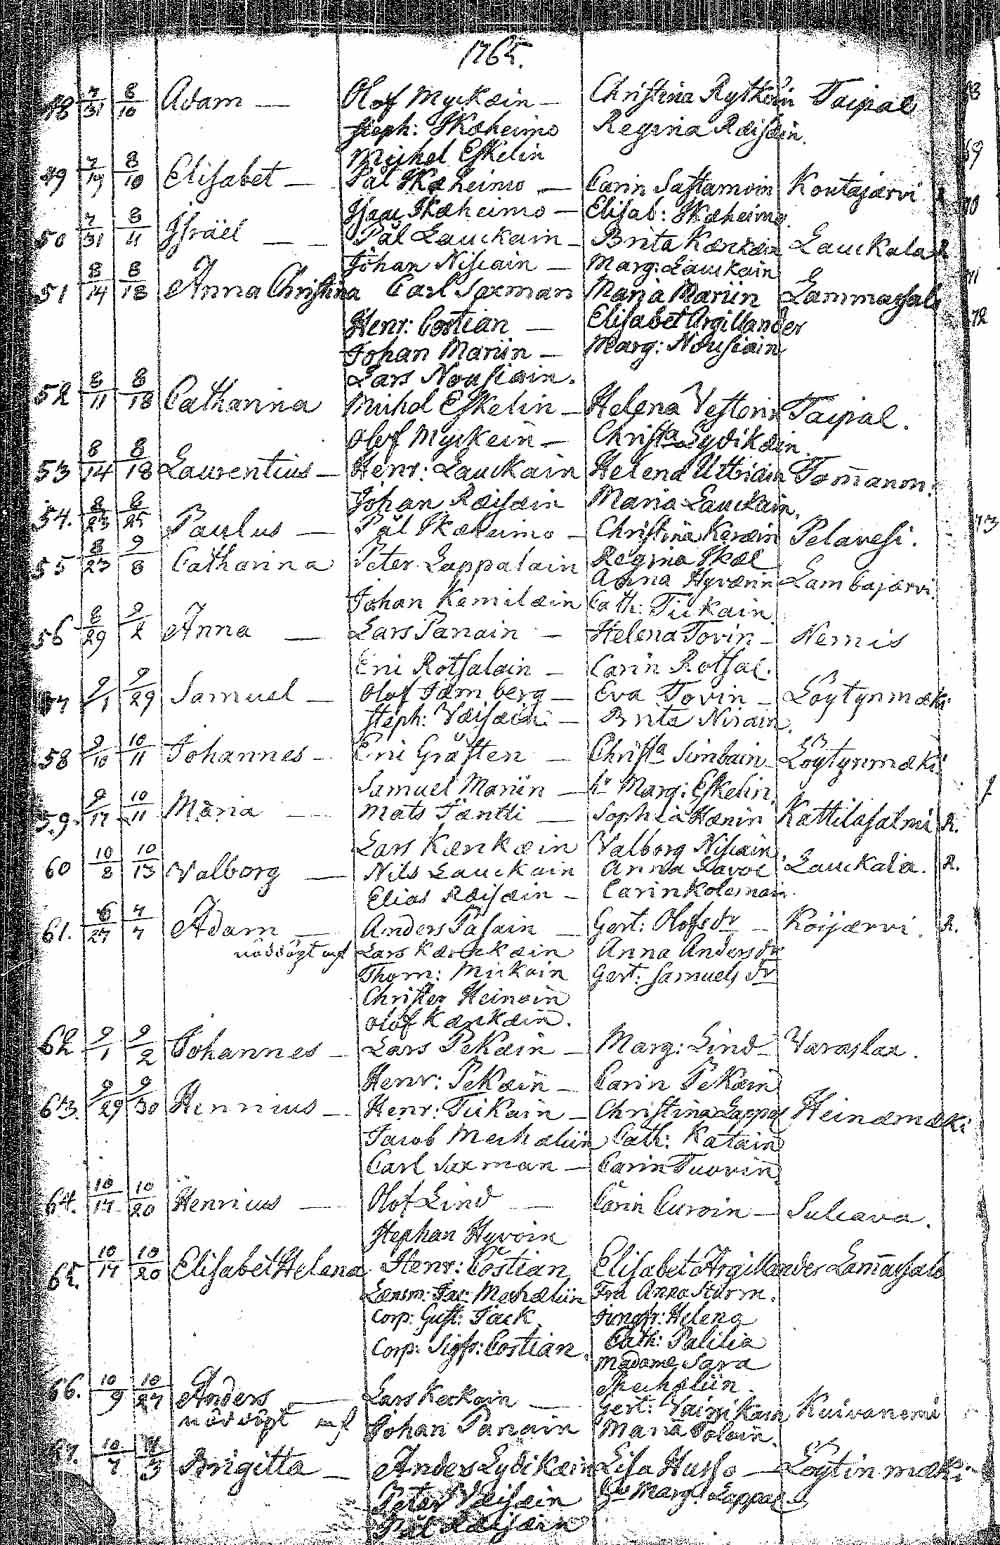 1765.
48 7/31 8/10 Adam — Olof Myckæin — Christina Rytköin Taipal
Steph: Ikæheimo Regina Ræisæin.
Michel Eskelin
49 7/19 8/10 Elisabet — Pål Ikæheimo — Carin Sastamoin Koutajærvi
Isaac Ikæheimo — Elisab: Ikæheimo
50 7/31 8/11 Isräel — — Pål Lauckain — Brita Kænkæin Lauckala R
Johan Nisiain — Marg: Lauckain
51 8/14 8/18 Anna Christina Carl Saxman Maria Mariin Lammassalo
Henr: Costian — Elisabet Argillander
Johan Mariin — Marg: Nousiain
Lars Nousiain.
52 8/11 8/18 Catharina Michel Eskelin — Helena Vestorin Taipal.
Olof Myckein — Christa Lydikæin
53 8/14 8/18 Laurentius — Henr: Lauckain Helena Uttriain Tom̄anon.
Johan Ræisæin Maria Lauckain.
54. 8/23 8/25 Paulus — Pål Ikæheimo — Christina Keræin Pelavesi.
Regina Ikæl
55 8/23 9/8 Catharina Peter Lappalain Anna Hyvænin Lambajærvi
Johan Kemilæin Cath: Tiikain
56 8/29 9/2 Anna — Lars Panain — Helena Tovin — Nemis
Eric Rotsalain — Carin Rotsal.
57 9/1 9/29 Samuel — Olof Tamberg — Eva Tovin — Löytynmæki
Steph: Væisæin — Brita Nisiain.
58 9/10 10/11 Johannes — Eric Gråsten — Christa Simbain Löytynmæki
Samuel Mariin — hu Marg: Eskelin.
59. 9/17 10/11 Maria — Mats Jäntti — Sophia Hænin Kattilasalmi R.
Lars Kænkæin Valborg Nisiain.
60 10/8 10/13 Valborg — Nils Lauckain Anna Savol Lauckala. R.
Elias Ræisæin — Carin Kolemain.
61. 6/27 7/7 Adam — Anders Pasain — Gert: Olofsdr — Koijærvi. R.
nöddöpt af Lars Kænkæin Anna Andersdr
Thom: Mickain Gert: Samuelsdr
Christer Heinoin
Olof Kænkæin.
62 9/1 9/2 Johannes — Lars Pekæin — Marg: Lind — Varaslax.
Henr: Pekæin — Carin Pekæin
63. 9/29 9/30 Henricus — Henr: Tiikain — Christina Lappal Heinæmæki
Jacob Mechæliin Cath: Katain
Carl Saxman — Carin Tuovin
64. 10/17 10/20 Henricus — Olof Lind — Carin Curoin — Sulcava.
Stephan Hyvöin
65. 10/17 10/20 Elisabet Helena Henr: Costian Elisabet Argillander Lam̄assalo
Lænsm: Jac: Mechæliin Fru Anna Sturm.
Corp: Gust: Tack Jungfr: Helena
Corp: Sigfr: Costian. Cath: Palilia
Madame Sara
Mechæliin
66. 10/9 10/27 Anders — Lars Keckain — Gert: Vainikain Kuivanemi
nöddöpt af Johan Panain Maria Tolain.
67. 10/7 11/3 Brigitta — Anders Lydikæin Lisa Husso — Löytinmæki
Peter Væisæin Hu Marg: Lappal
Pål Ræisæin